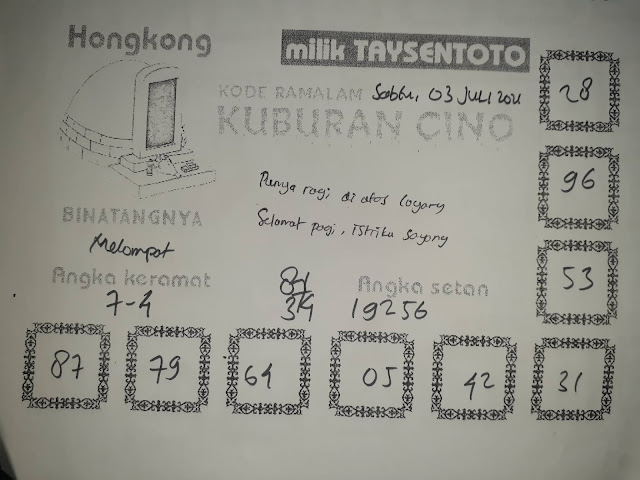 Hongkong
milik TAYSENTOTO
KODE RAMALAM Sabtu, 03 JULI 2021
KUBURAN CINO
28
96
53
Punya ragi, di atas loyang
Selamat pagi, istriku sayang
BINATANGNYA
Melompat
Angka keramat
7-4
Angka setan
19256
87
79
64
05
42
31